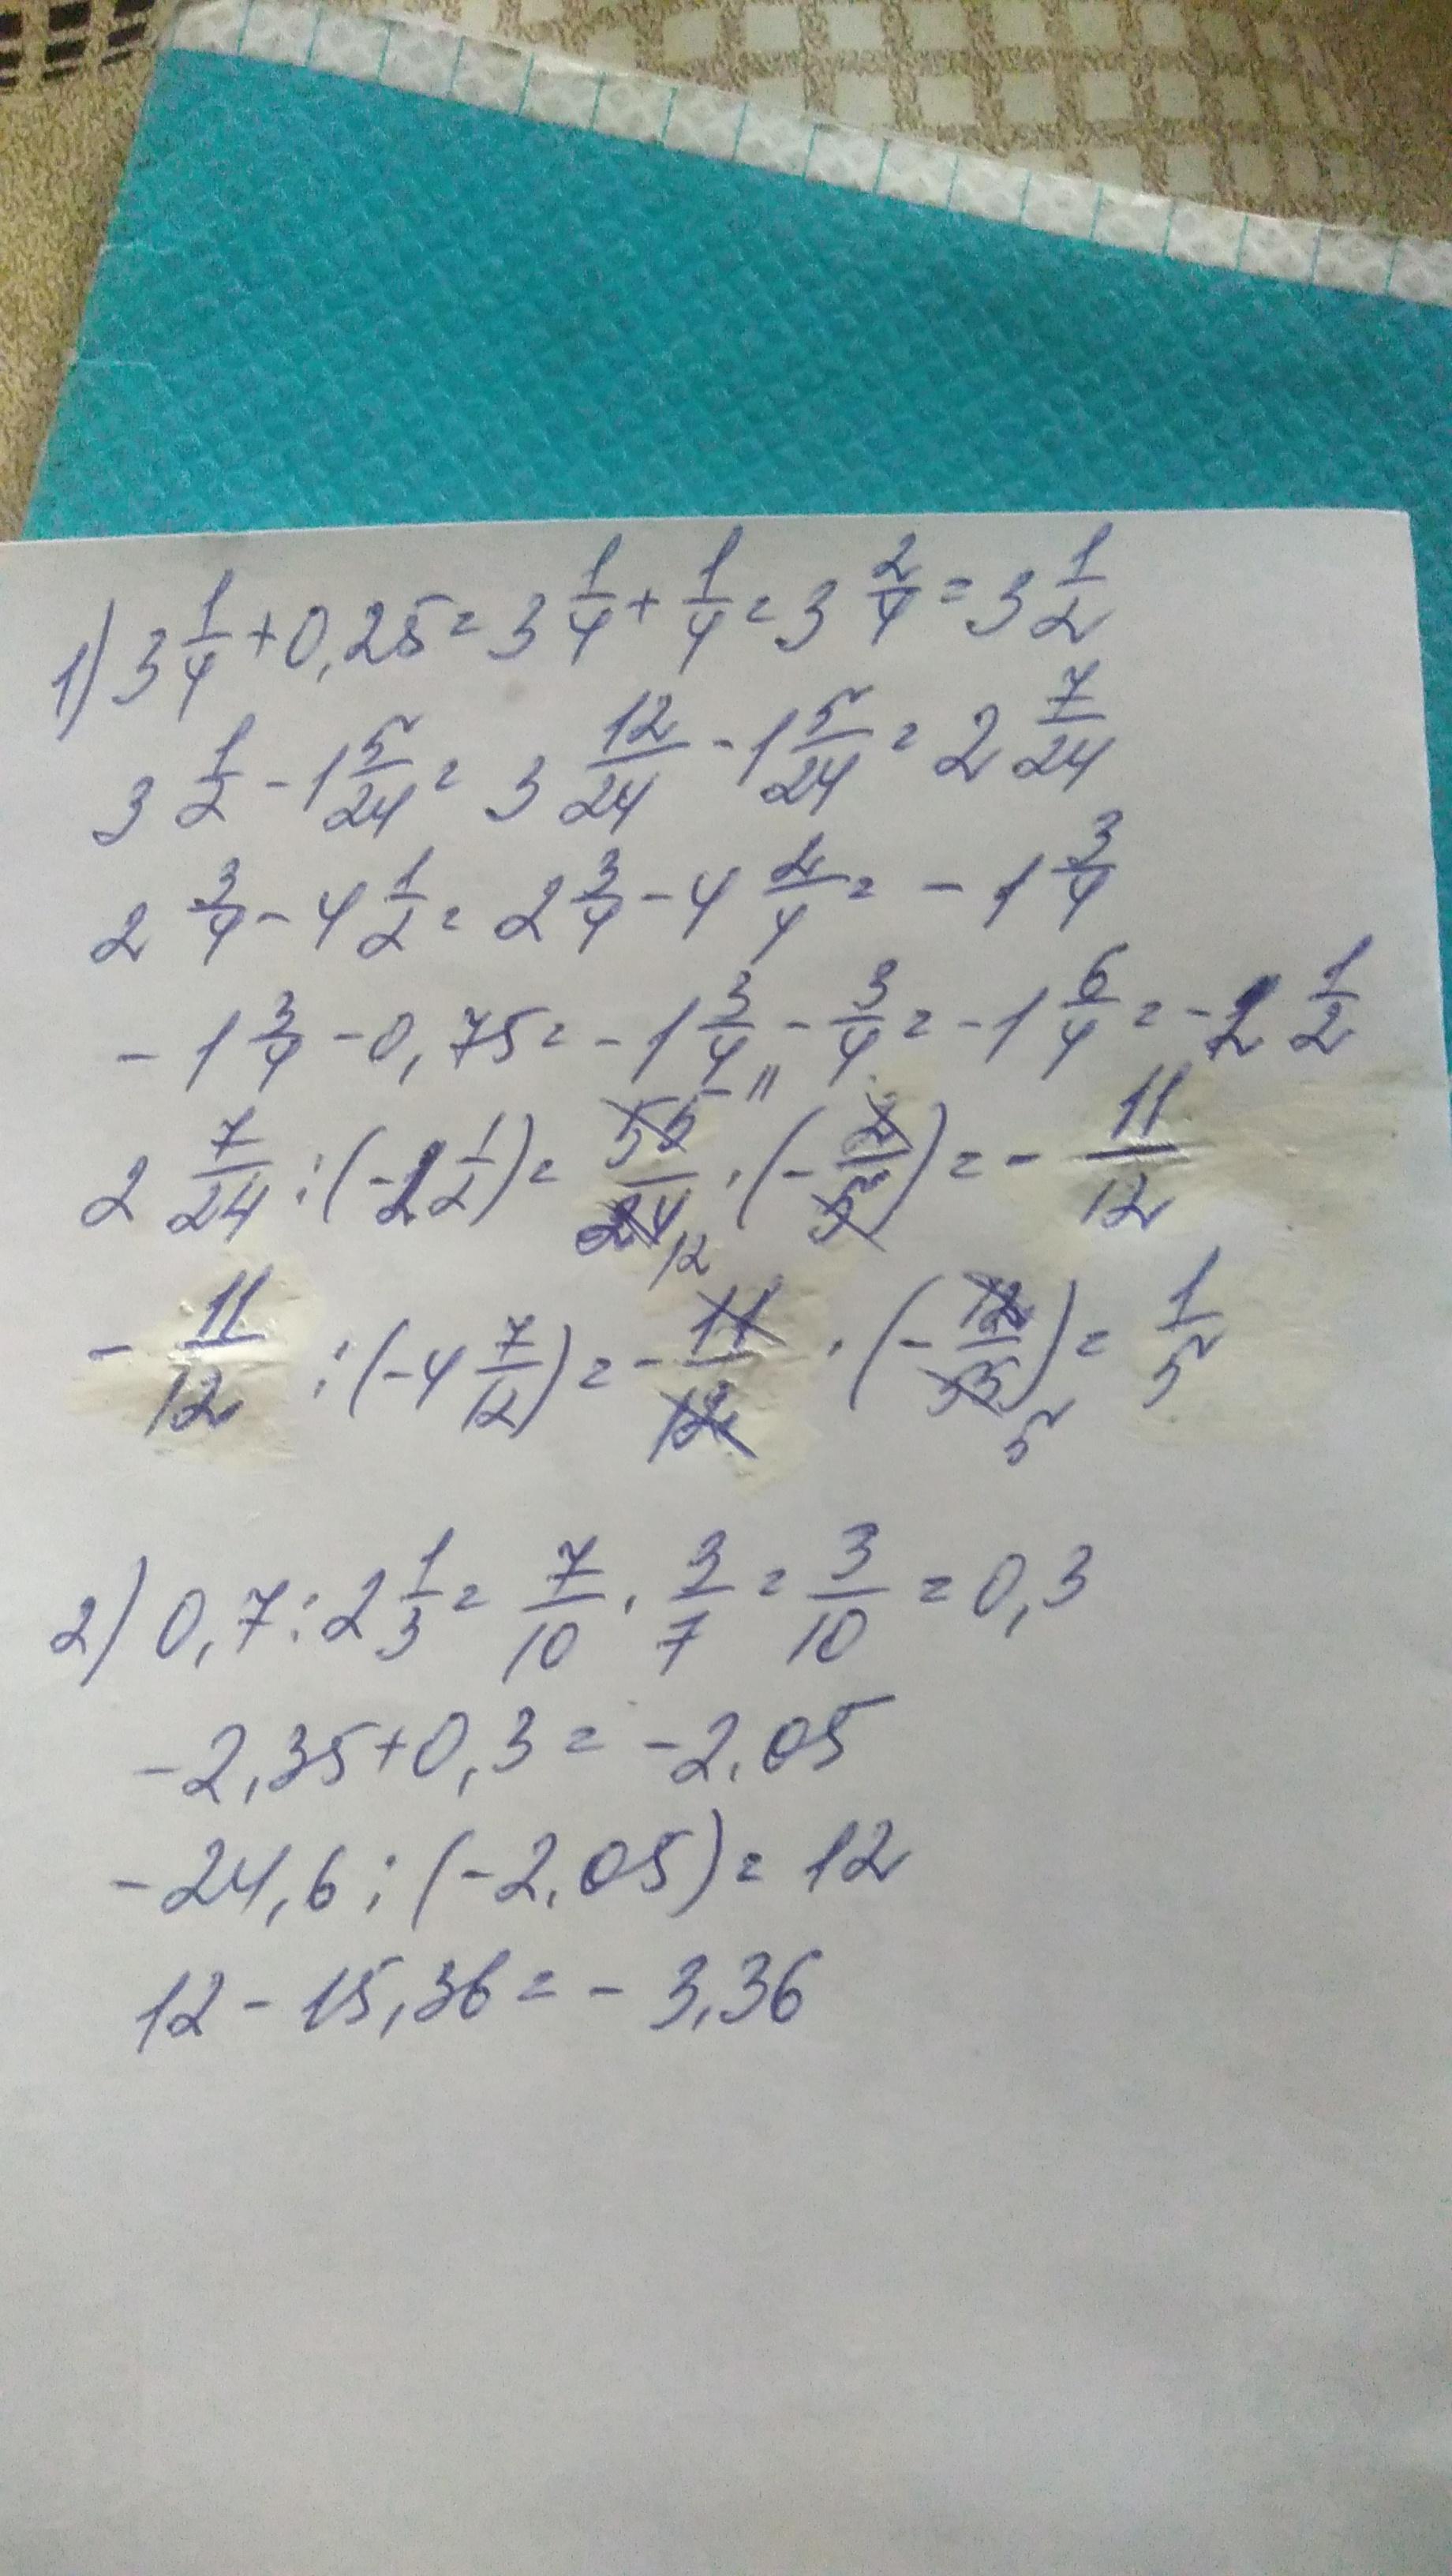 1) 3 1/4 + 0,25 = 3 1/4 + 1/4 = 3 2/4 = 3 1/2
3 1/2 - 1 5/24 = 3 12/24 - 1 5/24 = 2 7/24
2 3/4 - 4 1/2 = 2 3/4 - 4 2/4 = - 1 3/4
- 1 3/4 - 0,75 = - 1 3/4 - 3/4 = - 1 6/4 = - 2 1/2
2 7/24 : (- 2 1/2) = 55 11/24 12 · (- 2/5) = - 11/12
- 11/12 : (- 4 7/12) = - 11/12 · (- 12/55 5) = 1/5
2) 0,7 : 2 1/3 = 7/10 · 3/7 = 3/10 = 0,3
- 2,35 + 0,3 = - 2,05
- 24,6 : (- 2,05) = 12
12 - 15,36 = - 3,36